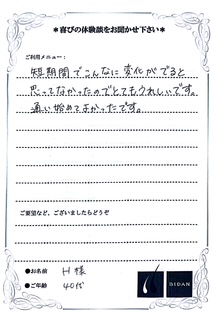 ＊喜びの体験談をお聞かせ下さい＊
ご利用メニュー：
短期間でこんなに変化がでると
思ってなかったのでとてもうれしいです。
通い始めてよかったです。
ご要望など、ございましたらどうぞ
●お名前 H様
●ご年齢 40代
BIDAN